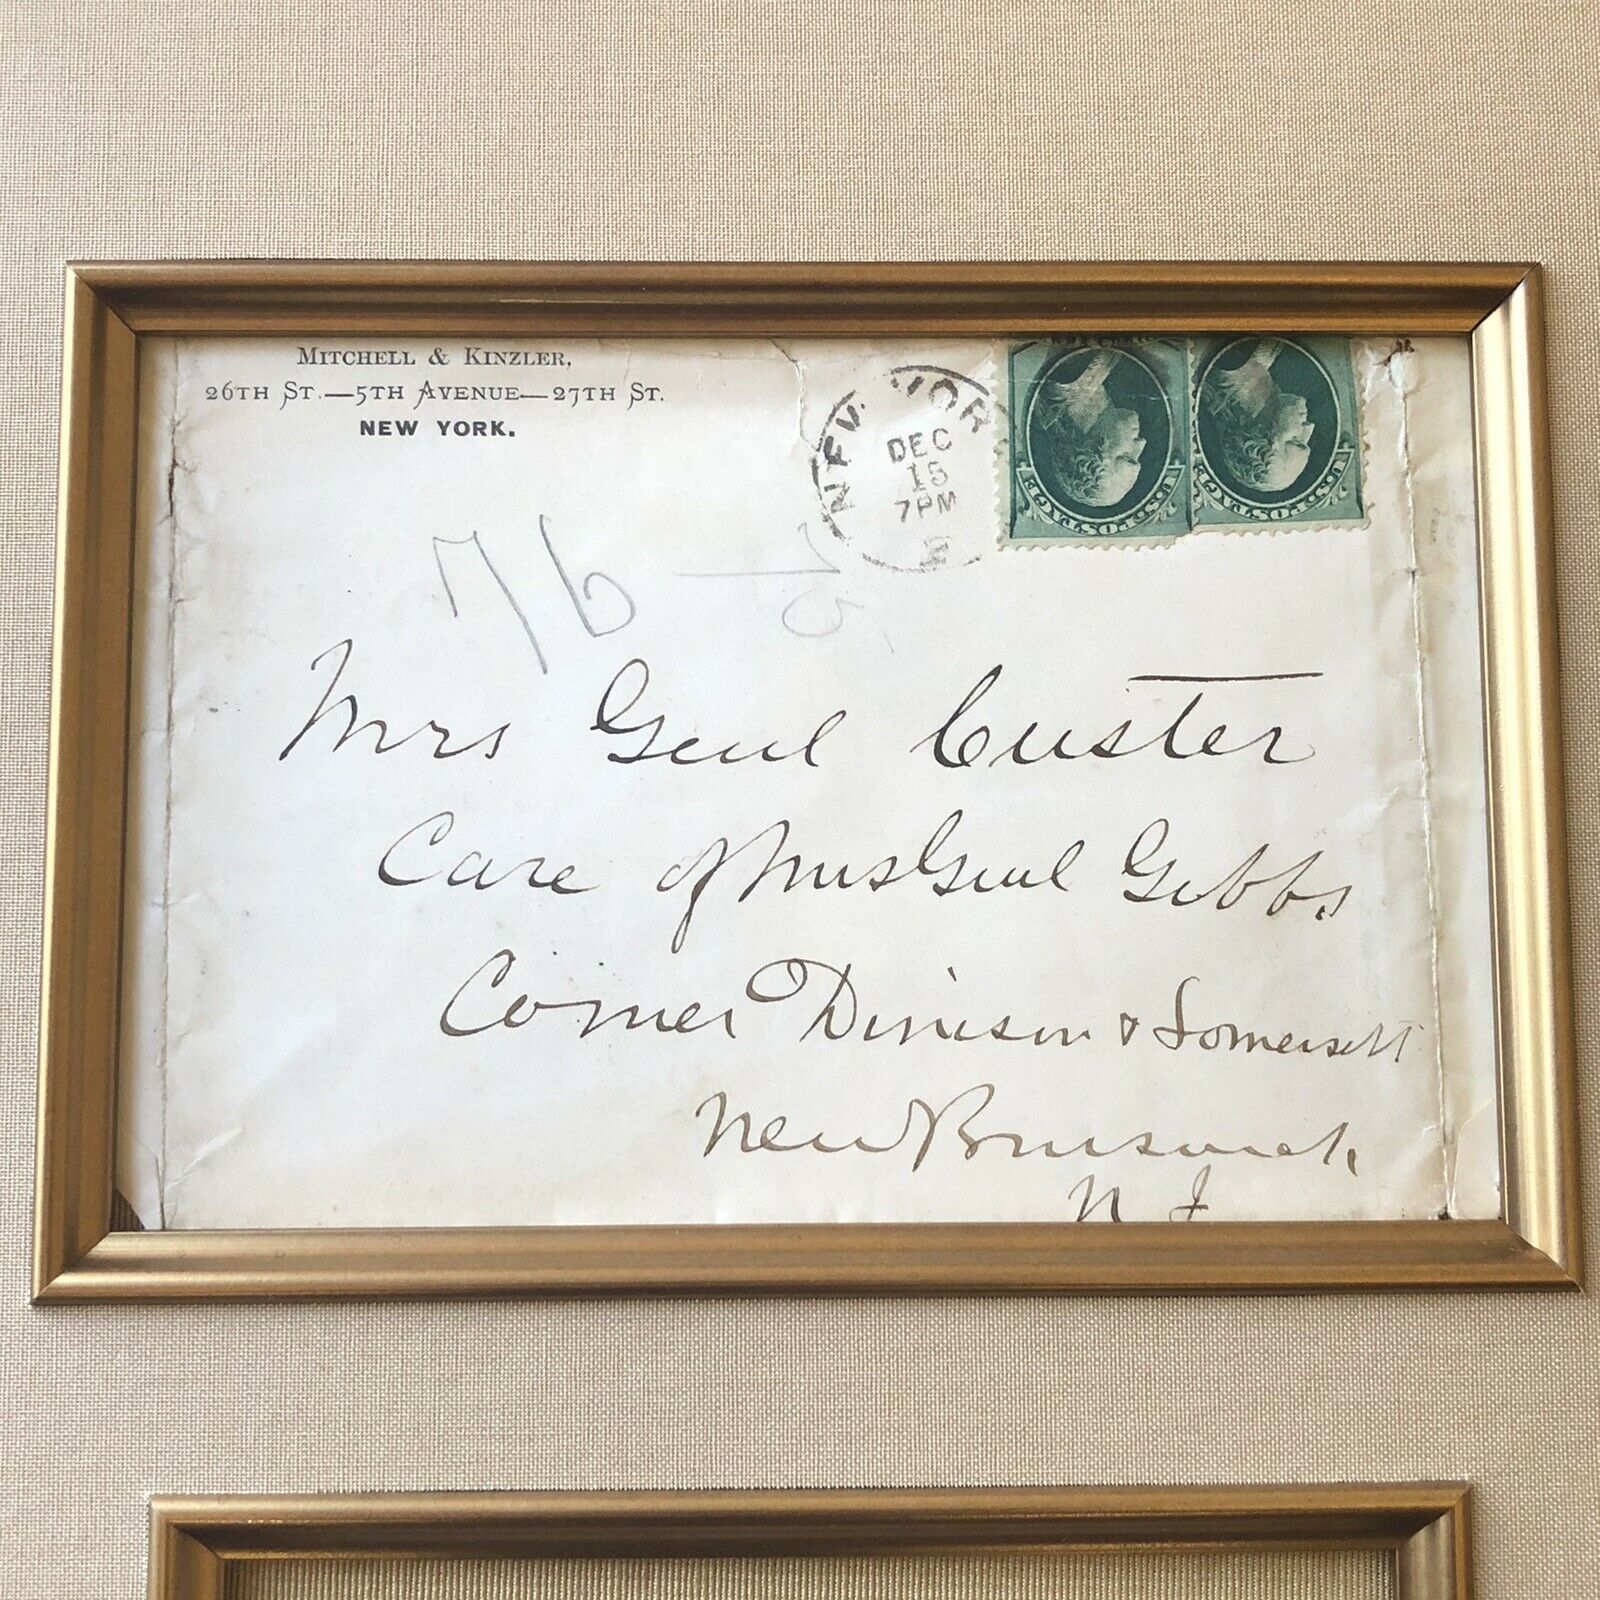 MITCHELL & KINZLER,
26TH ST.—5TH AVENUE—27TH ST.
NEW YORK.
NEW YORK
DEC
15
7PM
U.S. POSTAGE
U.S. POSTAGE
76
75
Mrs Genl Custer
Care of Mrs Genl Gibbs
Corner Division & Somersett
New Brunswick,
N J